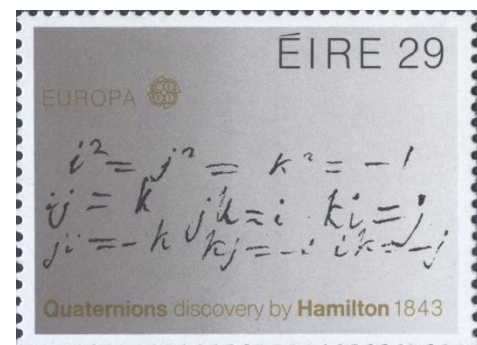 ÉIRE 29
EUROPA
i² = j² = k² = -1
ij = k jk = i ki = j
ji = -k kj = -i ik = -j
Quaternions discovery by Hamilton 1843